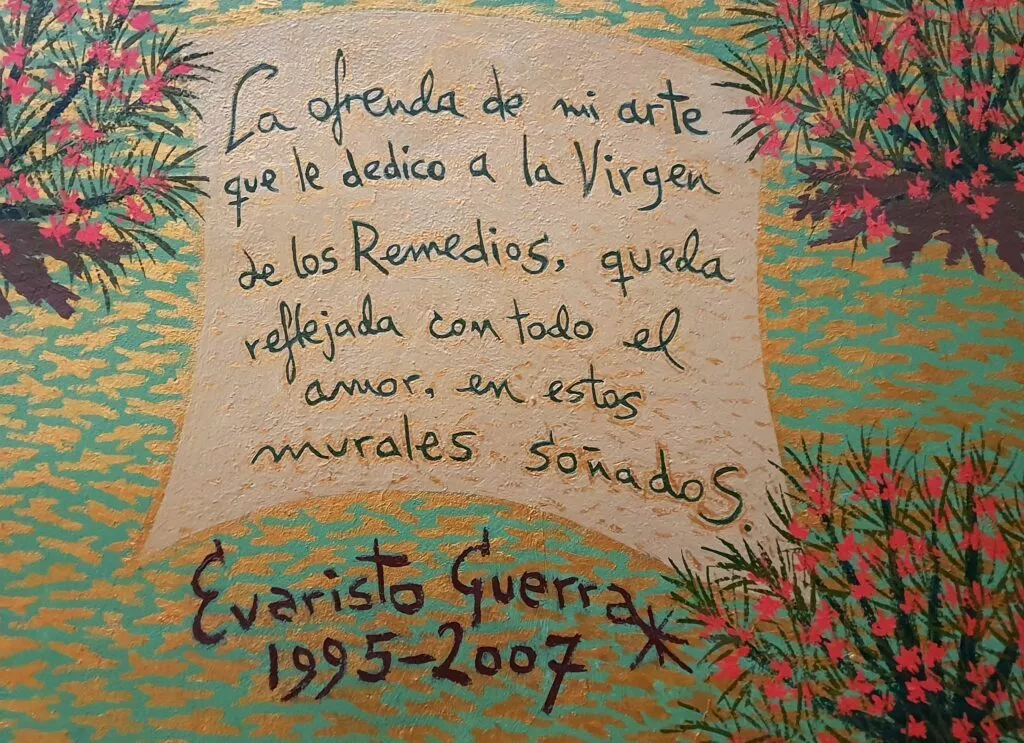 La ofrenda de mi arte
que le dedico a la Virgen
de los Remedios, queda
reflejada con todo el
amor, en estos
murales soñados.
Evaristo Guerra
1995-2007